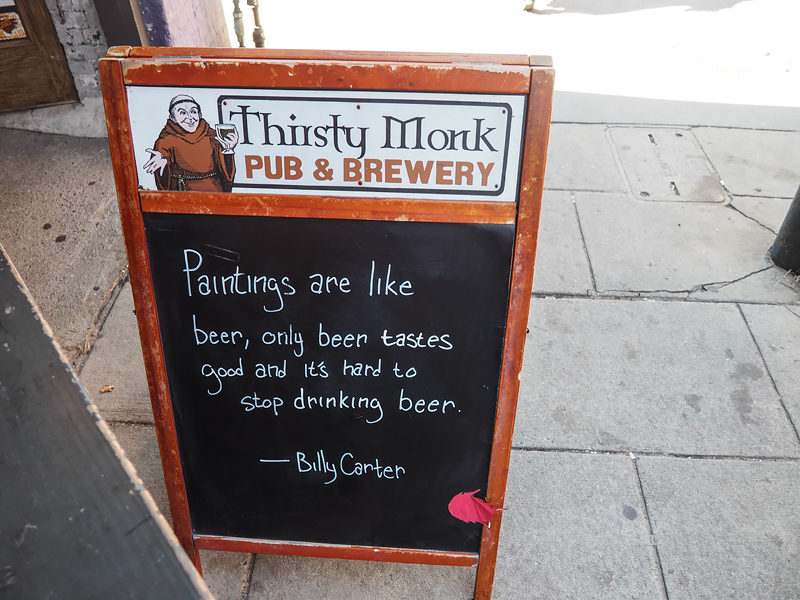 Thirsty Monk
PUB & BREWERY
Paintings are like
beer, only beer tastes
good and it's hard to
stop drinking beer.
— Billy Carter